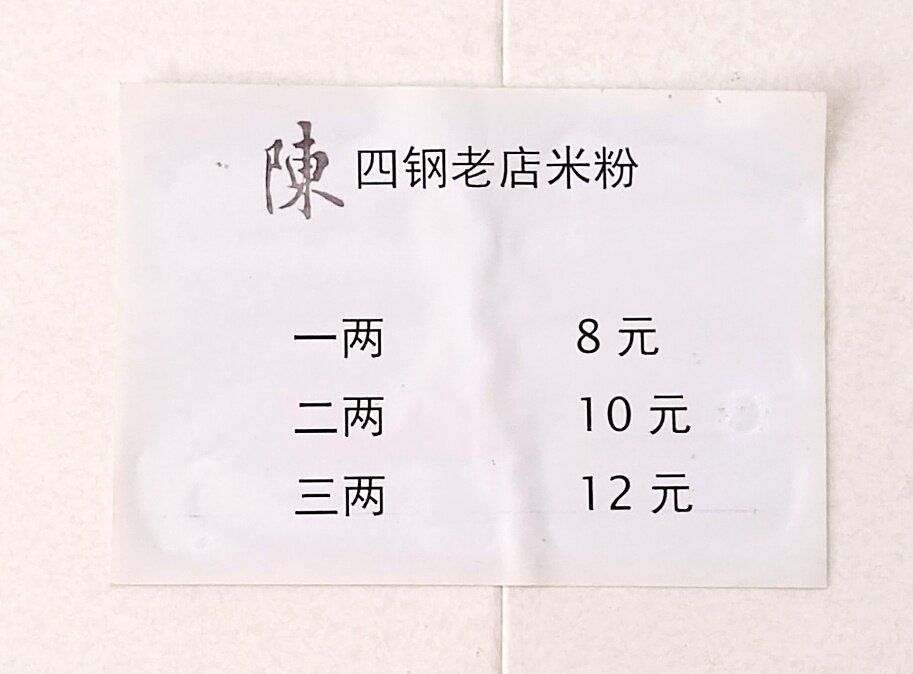 陳 四钢老店米粉
一两 8 元
二两 10 元
三两 12 元